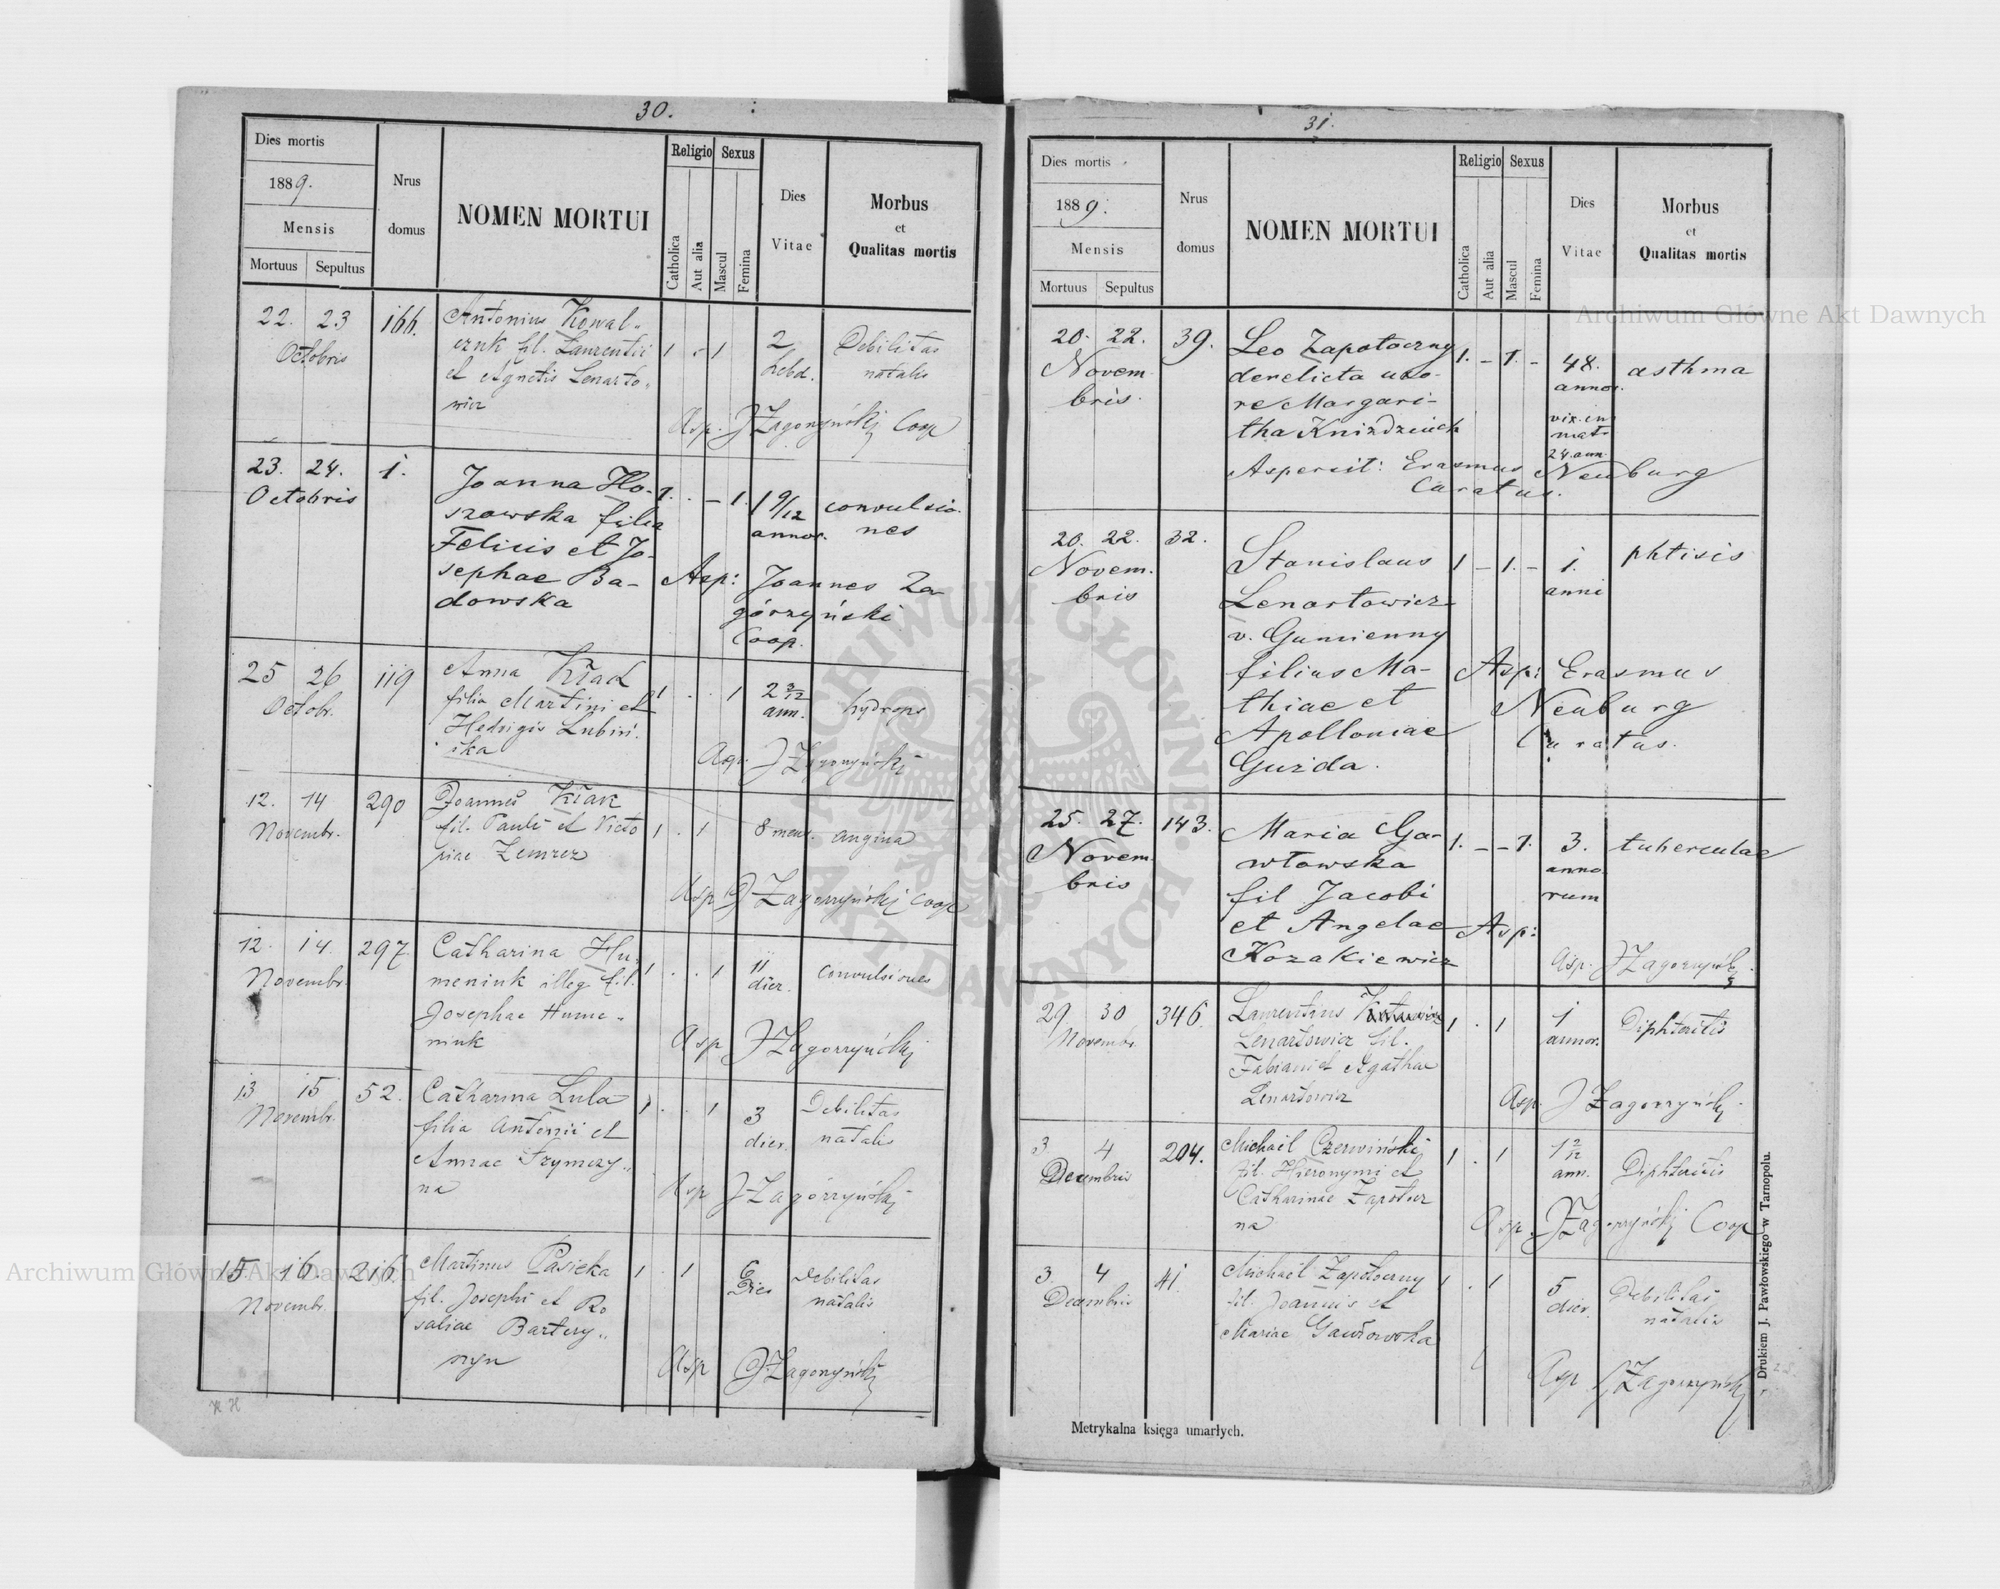 30.
Dies mortis
1889.
Mensis
Mortuus Sepultus
Nrus
domus
NOMEN MORTUI
Religio
Catholica
Aut alia
Sexus
Mascul
Femina
Dies
Vitae
Morbus
et
Qualitas mortis
22. 23
Octobris
166.
Antonius Kowal-
czuk fil. Laurentii
et Agnetis Lenarto-
wicz
1 - 1
2
hebd.
Debilitas
natalis
Asp. J Zagorzyński Coop
23. 24.
Octobris
1.
Joanna Ho-
szowska filia
Felicis et Jo-
sephae Ba-
dowska
1. - 1.
1 9/12
annor.
convulsio-
nes
Asp: Joannes Za
górzyński
Coop.
25 26
Octobr.
119
Anna Kład
filia Martini et
Hedvigis Lubiń-
ska
1 . . 1
2 3/12
ann.
hydrops
Asp. J Zagorzyński
12. 14
Novembr.
290
Joannes Kłak
fil. Pauli et Victo
riae Zemrez
1 . 1
8 mens.
angina
Asp J Zagorzyński Coop
12. 14.
Novembr.
297
Catharina Hu-
meniuk illeg. fil.
Josephae Hume-
niuk
1 . . 1
11
dier.
Convulsiones
Asp J Zagorzyński
13 15
Novembr.
52.
Catharina Lula
filia Antonii et
Annae Szymczy-
na
1 . . 1
3
dier.
Debilitas
natalis
Asp J Zagórzyński
15. 16.
Novembr.
216
Martinus Pasieka
fil. Josephi et Ro
saliae Bartczy-
szyn
1 . 1
6
Dies
Debilitas
natalis
Asp J Zagorzyński
31.
Dies mortis
1889.
Mensis
Mortuus Sepultus
Nrus
domus
NOMEN MORTUI
Religio
Catholica
Aut alia
Sexus
Mascul
Femina
Dies
Vitae
Morbus
et
Qualitas mortis
20. 22.
Novem-
bris.
39.
Leo Zapotoczny
derelicta uxo-
re Margari-
tha
1. - 1. -
48.
annor.
vix. in
matr.
24. ann.
asthma
Aspersit: Erasmus Neuburg
Curatus.
20. 22.
Novem-
bris
32.
Stanislaus
Lenartowicz
v. Gumienny
filius Ma-
thiae et
Apolloniae
Guzda.
1 - 1. -
1.
anni
phtisis
Asp: Erasmus
Neuburg
Curatus.
25. 27.
Novem-
bris
143.
Maria Ga-
włowska
fil Jacobi
et Angelae
Kozakiewicz
1. - - 1.
3.
anno-
rum
tuberculae
Asp:
Asp. J Zagorzyński
29 30
Novembr.
346
Laurentius
Lenartowicz fil.
Fabiani et Agathae
Lenartowicz
1 . 1
1
annor.
Diphteritis
Asp. J Zagorzyński
3 4
Decembris
204.
Michael Czerwiński
fil. Hieronymi et
Catharinae Zapotocz
na
1 . 1
1 2/12
ann.
Diphteritis
Asp. J Zagorzyński Coop
3 4
Decembris
41.
Michael Zapotoczny
fil. Joannis et
Mariae Gawłowska
1 . 1
5
dier.
Debilitas
natalis
Asp J Zagorzyński
Metrykalna księga umarłych.
Drukiem J. Pawłowskiego w Tarnopolu.
Archiwum Główne Akt Dawnych
Archiwum Główne Akt Dawnych
ARCHIWUM GŁÓWNE AKT DAWNYCH